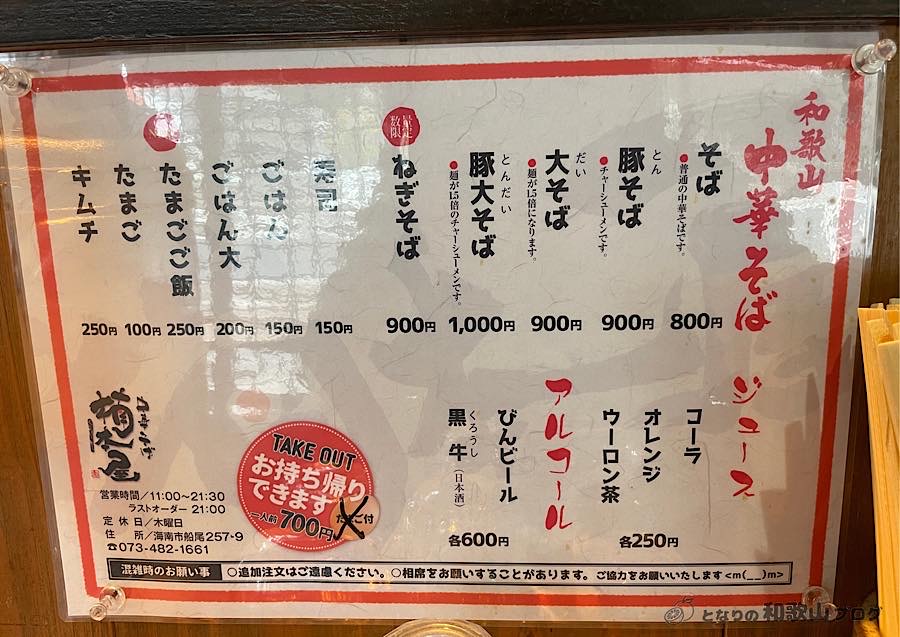 和歌山
中華そば
そば
●普通の中華そばです。
800円
とん
豚そば
●チャーシューメンです。
900円
だい
大そば
●麺が1.5倍になります。
900円
とんだい
豚大そば
●麺が1.5倍のチャーシューメンです。
1,000円
数量
限定
ねぎそば
900円
寿司
150円
ごはん
150円
ごはん大
200円
たまごご飯
250円
たまご
100円
キムチ
250円
ジュース
コーラ
オレンジ
ウーロン茶
各250円
アルコール
びんビール
くろうし
黒牛(日本酒)
各600円
TAKE OUT
お持ち帰り
できます
一人前700円
営業時間/11:00~21:30
ラストオーダー 21:00
定休日/木曜日
住 所/海南市船尾257-9
☎073-482-1661
混雑時のお願い事 ○追加注文はご遠慮ください。○相席をお願いすることがあります。ご協力をお願いいたします<m(__)m>
となりの和歌山ブログ